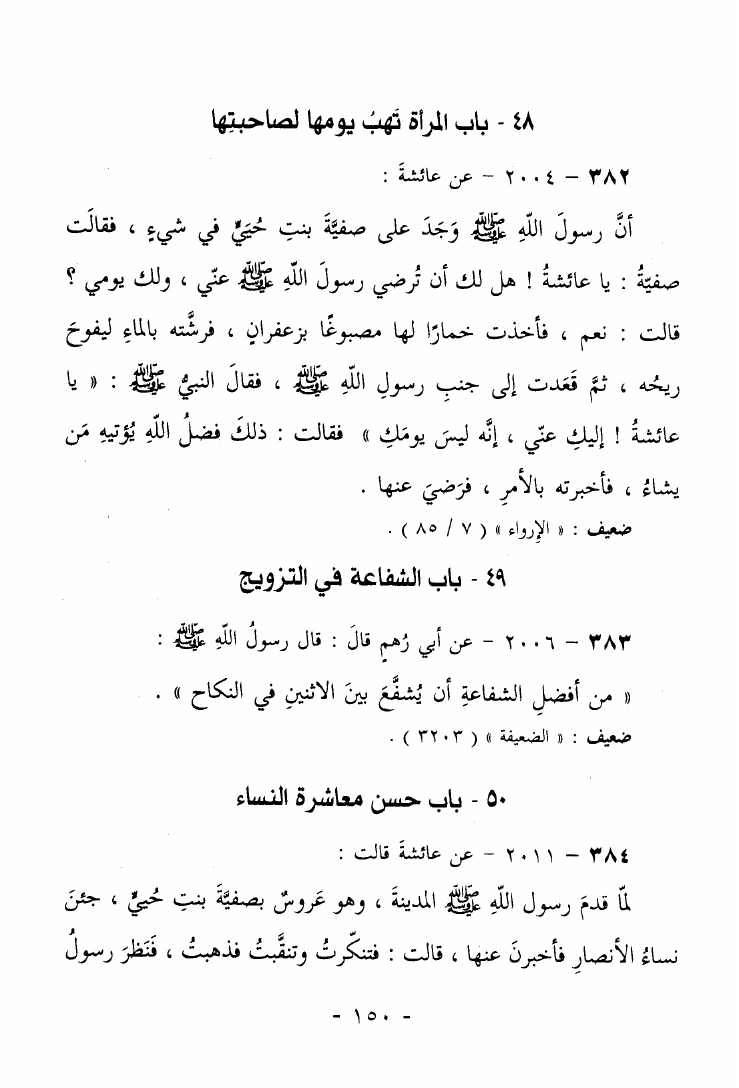 ٤٨ - باب المرأة تَهبُ يومها لصاحبتِها
٣٨٢ – ٢٠٠٤ – عن عائشةَ :
أنَّ رسولَ اللّهِ ﷺ وَجَدَ على صفيَّةَ بنتِ حُيَيٍّ في شيءٍ ، فقالَت
صفيّةُ : يا عائشةُ ! هل لك أن تُرضي رسولَ اللّهِ ﷺ عنّي ، ولك يومي ؟
قالت : نعم ، فأخذت خمارًا لها مصبوغًا بزعفرانٍ ، فرشَّته بالماءِ ليفوحَ
ريحُه ، ثمَّ قَعَدت إلى جنبِ رسولِ اللّهِ ﷺ ، فقالَ النبيُّ ﷺ : « يا
عائشةُ ! إليكِ عنّي ، إنَّه ليسَ يومَكِ » فقالت : ذلكَ فضلُ اللّهِ يُؤتيهِ مَن
يشاءُ ، فأخبرته بالأمرِ ، فرَضيَ عنها .
ضعيف : « الإرواء » ( ٧ / ٨٥ ) .
٤٩ - باب الشفاعة في التزويج
٣٨٣ – ٢٠٠٦ – عن أبي رُهمٍ قالَ : قال رسولُ اللّهِ ﷺ :
« من أفضلِ الشفاعةِ أن يُشفَّعَ بينَ الاثنينِ في النكاح » .
ضعيف : « الضعيفة » ( ٣٢٠٣ ) .
٥٠ - باب حسن معاشرة النساء
٣٨٤ – ٢٠١١ – عن عائشةَ قالت :
لمّا قدمَ رسول اللّهِ ﷺ المدينةَ ، وهو عَروسٌ بصفيَّةَ بنتِ حُييٍّ ، جئنَ
نساءُ الأنصارِ فأخبرنَ عنها ، قالت : فتنكّرتُ وتنقَّبتُ فذهبتُ ، فَنَظرَ رسولُ
- ١٥٠ -